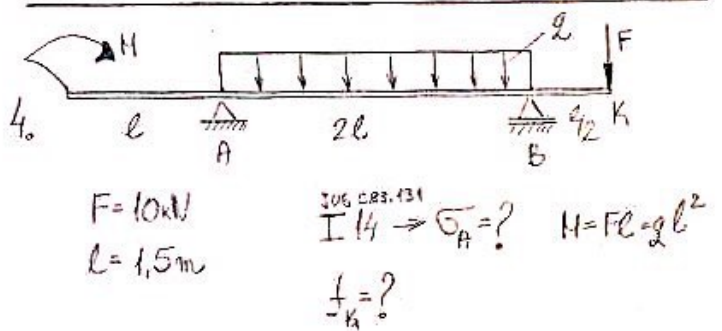 M
q
F
4.
l
2l
l/2
K
A
B
F = 10kN
l = 1,5m
JUS C.B3.131
I 14 → σ_A = ?
M = Fl = ql²
f_K = ?